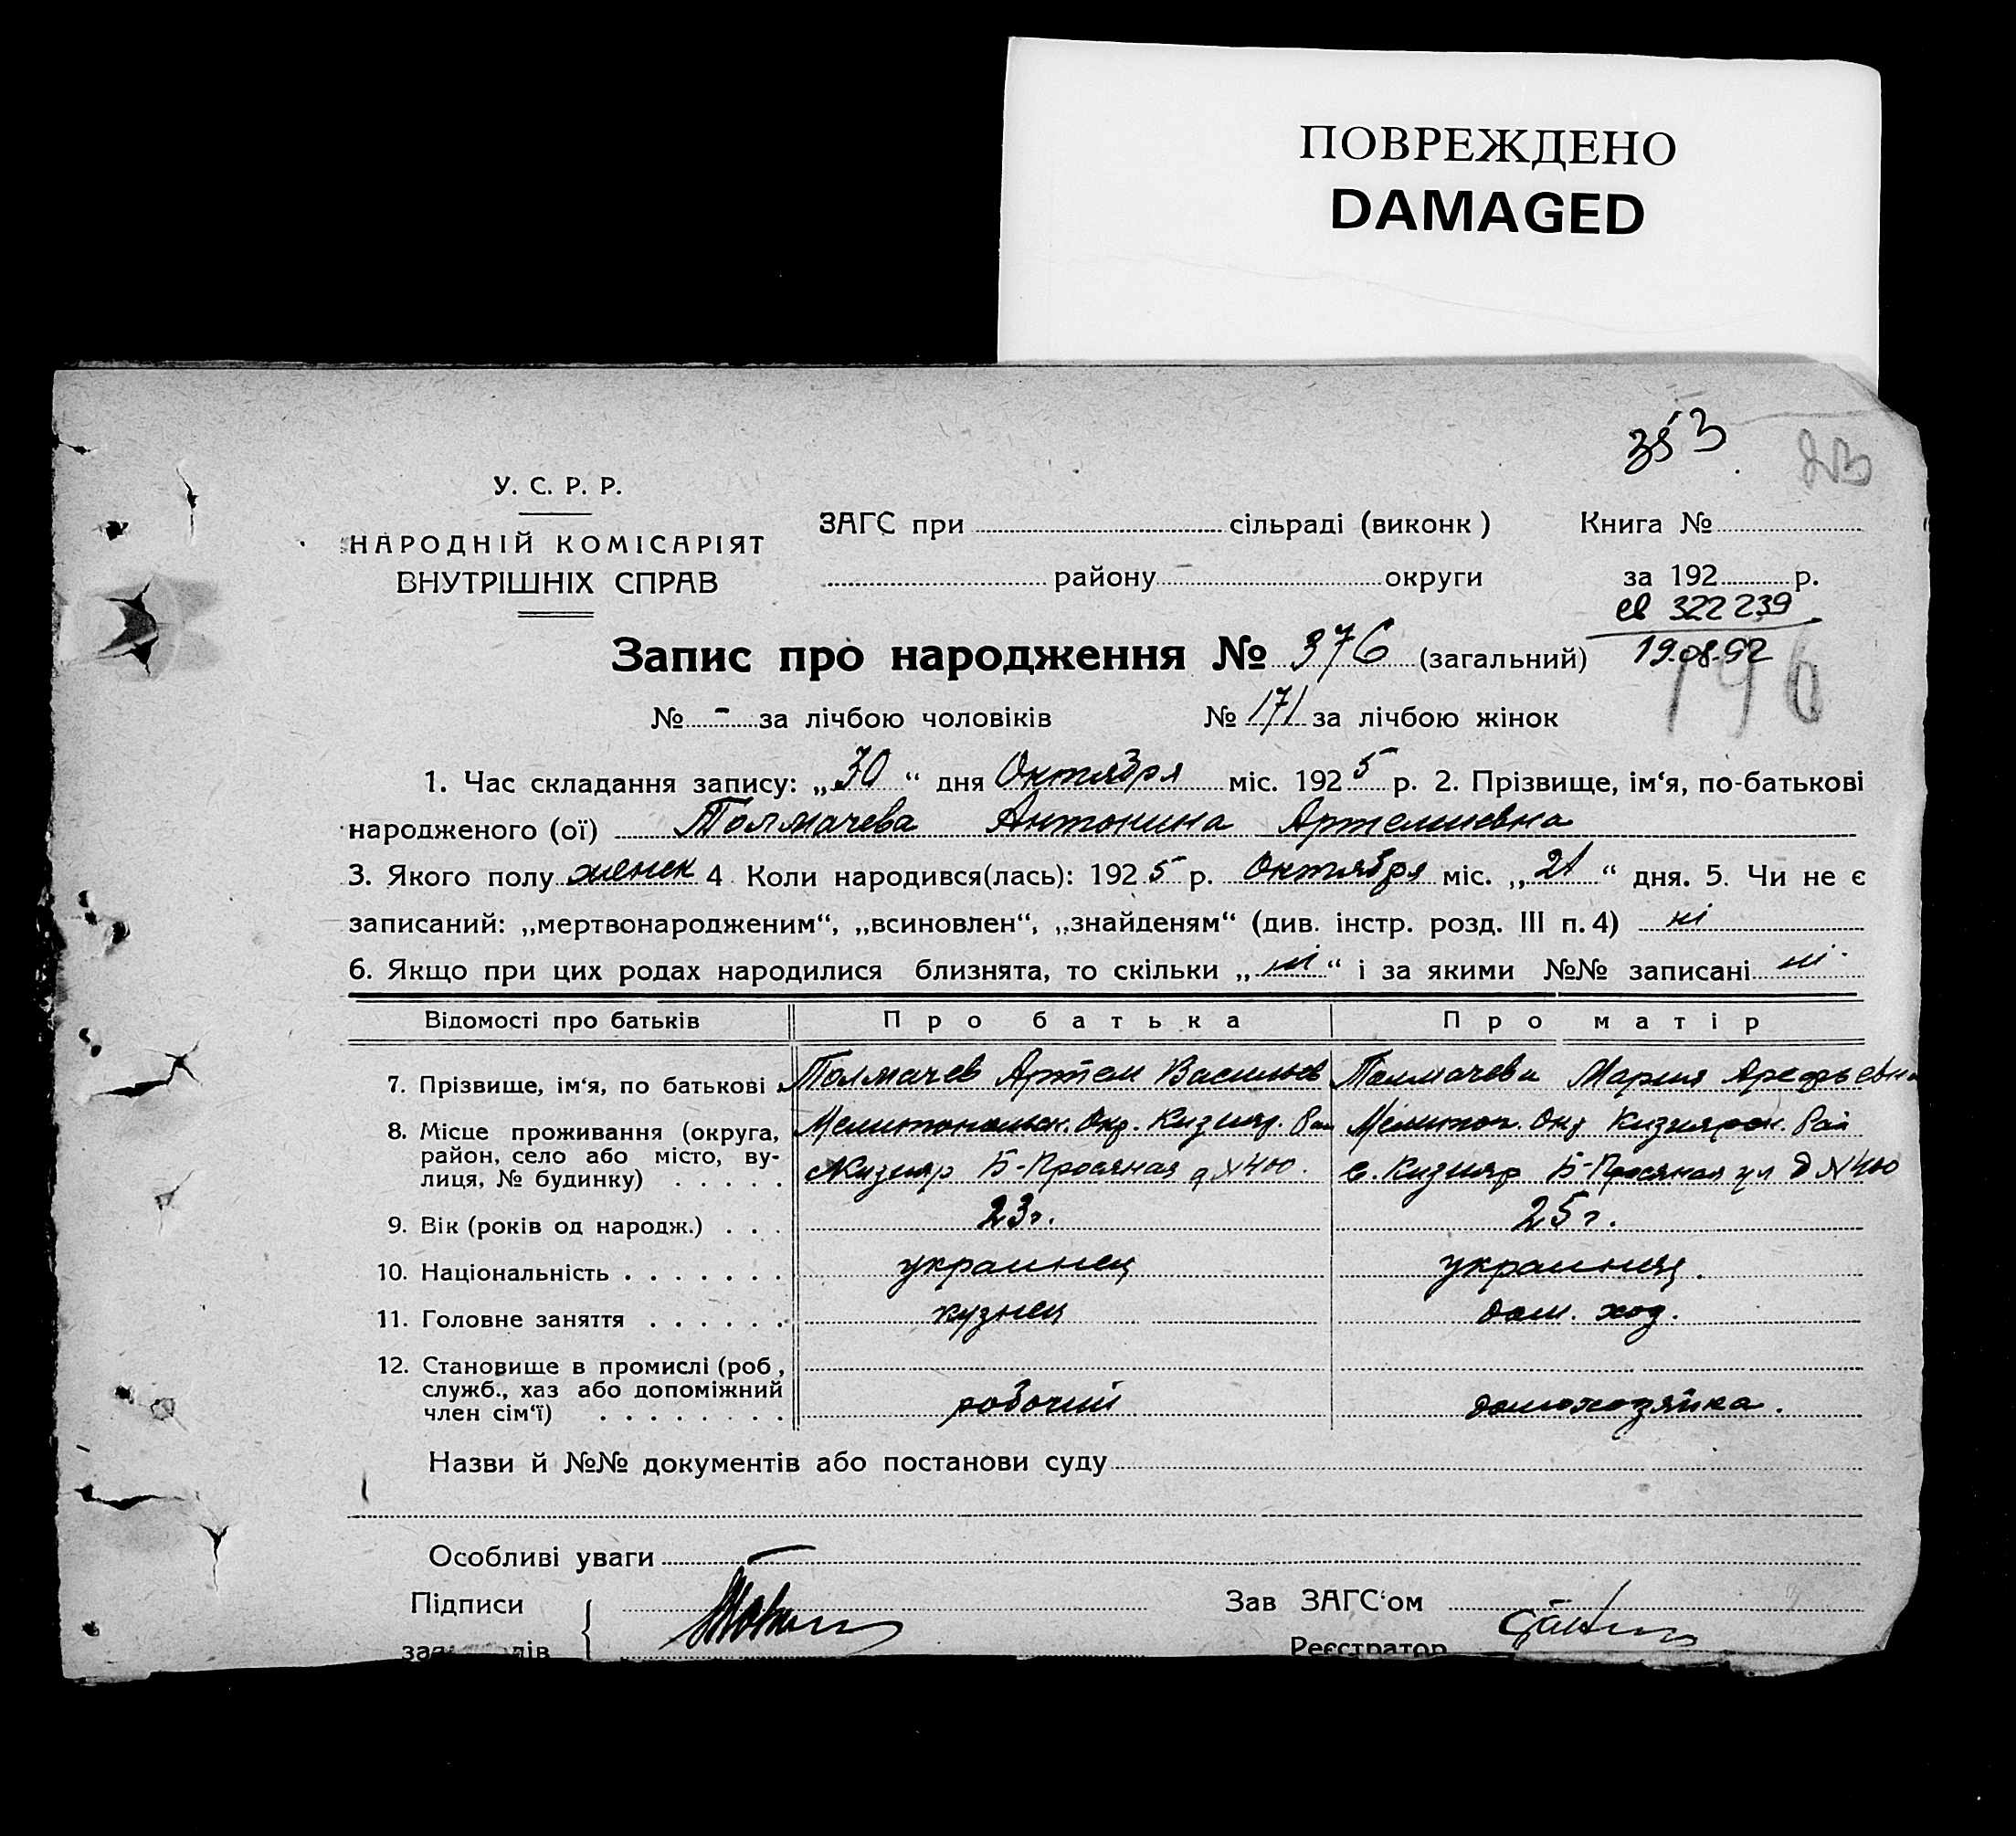 ПОВРЕЖДЕНО
DAMAGED
353
У. С. Р. Р.
НАРОДНІЙ КОМІСАРІЯТ
ВНУТРІШНІХ СПРАВ
ЗАГС при сільраді (виконк) Книга №
району округи за 192 р.
322239
19.08.92
196
Запис про народження № 376 (загальний)
№ - за лічбою чоловіків № 171 за лічбою жінок
1. Час складання запису: „30“ дня Октября міс. 1925 р. 2. Прізвище, ім‘я, по-батькові
народженого (ої) Толмачева Антонина Артемиевна
3. Якого полу женск 4 Коли народився(лась): 1925 р. Октября міс. „21“ дня. 5. Чи не є
записаний: „мертвонародженим“, „всиновлен“, „знайденям“ (див. інстр. розд. III п. 4) ні
6. Якщо при цих родах народилися близнята, то скільки „ні“ і за якими №№ записані ні
Відомості про батьків Про батька Про матір
7. Прізвище, ім‘я, по батькові Толмачев Артем Васильев Толмачева Мария Арефьевна
8. Місце проживання (округа, Мелитопольск. Окр. Кизияр. Рай Мелитоп. Окр Кизиярск. Рай
район, село або місто, ву- Кизияр Б-Просяная д №400. с. Кизияр Б-Просяная ул д №400
лиця, № будинку)
9. Вік (років од народж.) 23 г. 25 г.
10. Національність украинец украинец.
11. Головне заняття кузнец дом. хоз.
12. Становище в промислі (роб,
служб., хаз або допоміжний
член сім‘ї) робочий домохозяйка.
Назви й №№ документів або постанови суду
Особливі уваги
Підписи Зав ЗАГС‘ом
Реєстратор